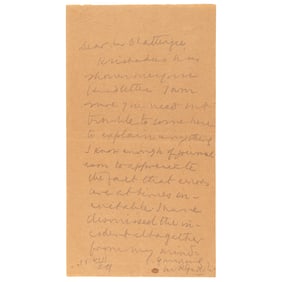 Dear Mr Chatterjee
Krishnadas has
shown me your
kind letter. I am
sure you need not
trouble to come here
to explain anything
I know enough of journal
ism to appreciate
the fact that errors
are at times in-
evitable. I have
dismissed the in-
cident altogether
from my mind.
Yours sincerely